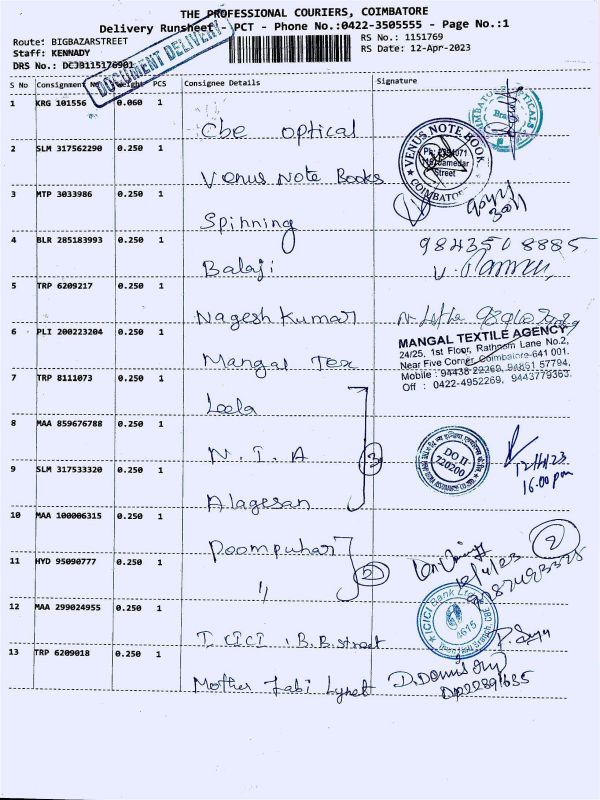 THE PROFESSIONAL COURIERS, COIMBATORE
Delivery Runsheet - PCT - Phone No.:0422-3505555 - Page No.:1
Route: BIGBAZARSTREET
Staff: KENNADY
DRS No.: DCJB115176901
RS No.: 1151769
RS Date: 12-Apr-2023
DOCUMENT DELIVERY
S No Consignment Weight PCS Consignee Details Signature
1 KRG 101556 0.060 1 Cbe optical
2 SLM 317562290 0.250 1 Venus Note Books
VENUS NOTE BOOK
Street
COIMBATORE
3 MTP 3033986 0.250 1 Spinning
4 BLR 285183993 0.250 1 Balaji 9843508885
5 TRP 6209217 0.250 1 Nagesh Kumar
6 PLI 200223204 0.250 1 Mangal Tex
MANGAL TEXTILE AGENCY
24/25, 1st Floor, Rathnam Lane No.2,
Near Five Corner, Coimbatore-641 001.
Mobile : 94438-22269, 94891 57794,
Off : 0422-4952269, 9443779363.
7 TRP 8111073 0.250 1 Leela
8 MAA 859676788 0.250 1 N. I. A 3
DO II-
720200
12/4/23
16.00 pm
9 SLM 317533320 0.250 1 Alagesan
10 MAA 100006315 0.250 1 Poompuhar 2
11 HYD 95090777 0.250 1 " 2
12/4/23
12 MAA 299024955 0.250 1 I. CICI . B.B. street
ICICI Bank Ltd
13 TRP 6209018 0.250 1 Mother